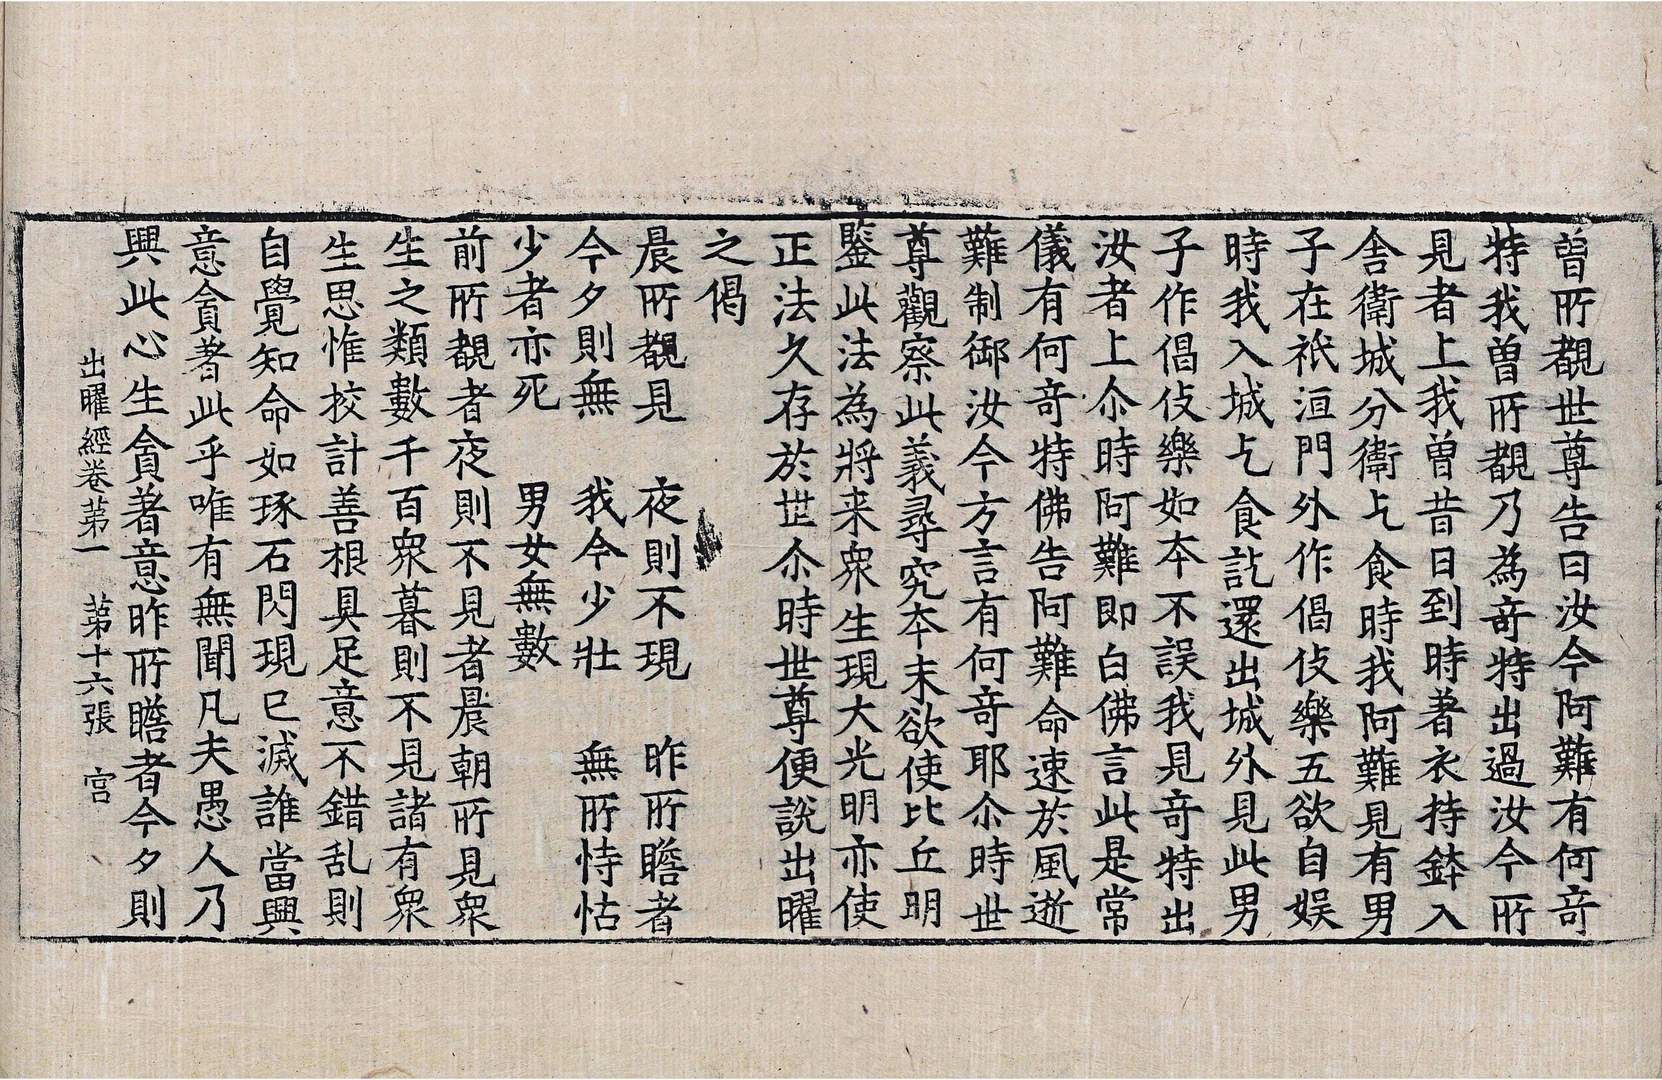 曽所覩世尊告曰汝今阿難有何竒
特我曽所覩乃為竒特出過汝今所
見者上我曽昔日到時著衣持鉢入
舎衛城分衛乞食時我阿難見有男
子在祇洹門外作倡伎樂五欲自娱
時我入城乞食訖還出城外見此男
子作倡伎樂如本不誤我見竒特出
汝者上尒時阿難即白佛言此是常
儀有何竒特佛告阿難命速於風逝
難制御汝今方言有何竒耶尒時世
尊觀察此義尋究本末欲使比丘明
鑒此法為将来衆生現大光明亦使
正法久存於世尒時世尊便説出曜
之偈
晨所覩見　夜則不現　昨所瞻者
今夕則無　我今少壯　無所恃怙
少者亦死　男女無數
前所覩者夜則不見者晨朝所見衆
生之類數千百衆暮則不見諸有衆
生思惟挍計善根具足意不錯乱則
自覺知命如琢石閃現已滅誰當興
意貪著此乎唯有無聞凡夫愚人乃
興此心生貪著意昨所瞻者今夕則
出曜經卷苐一　苐十六張　宫